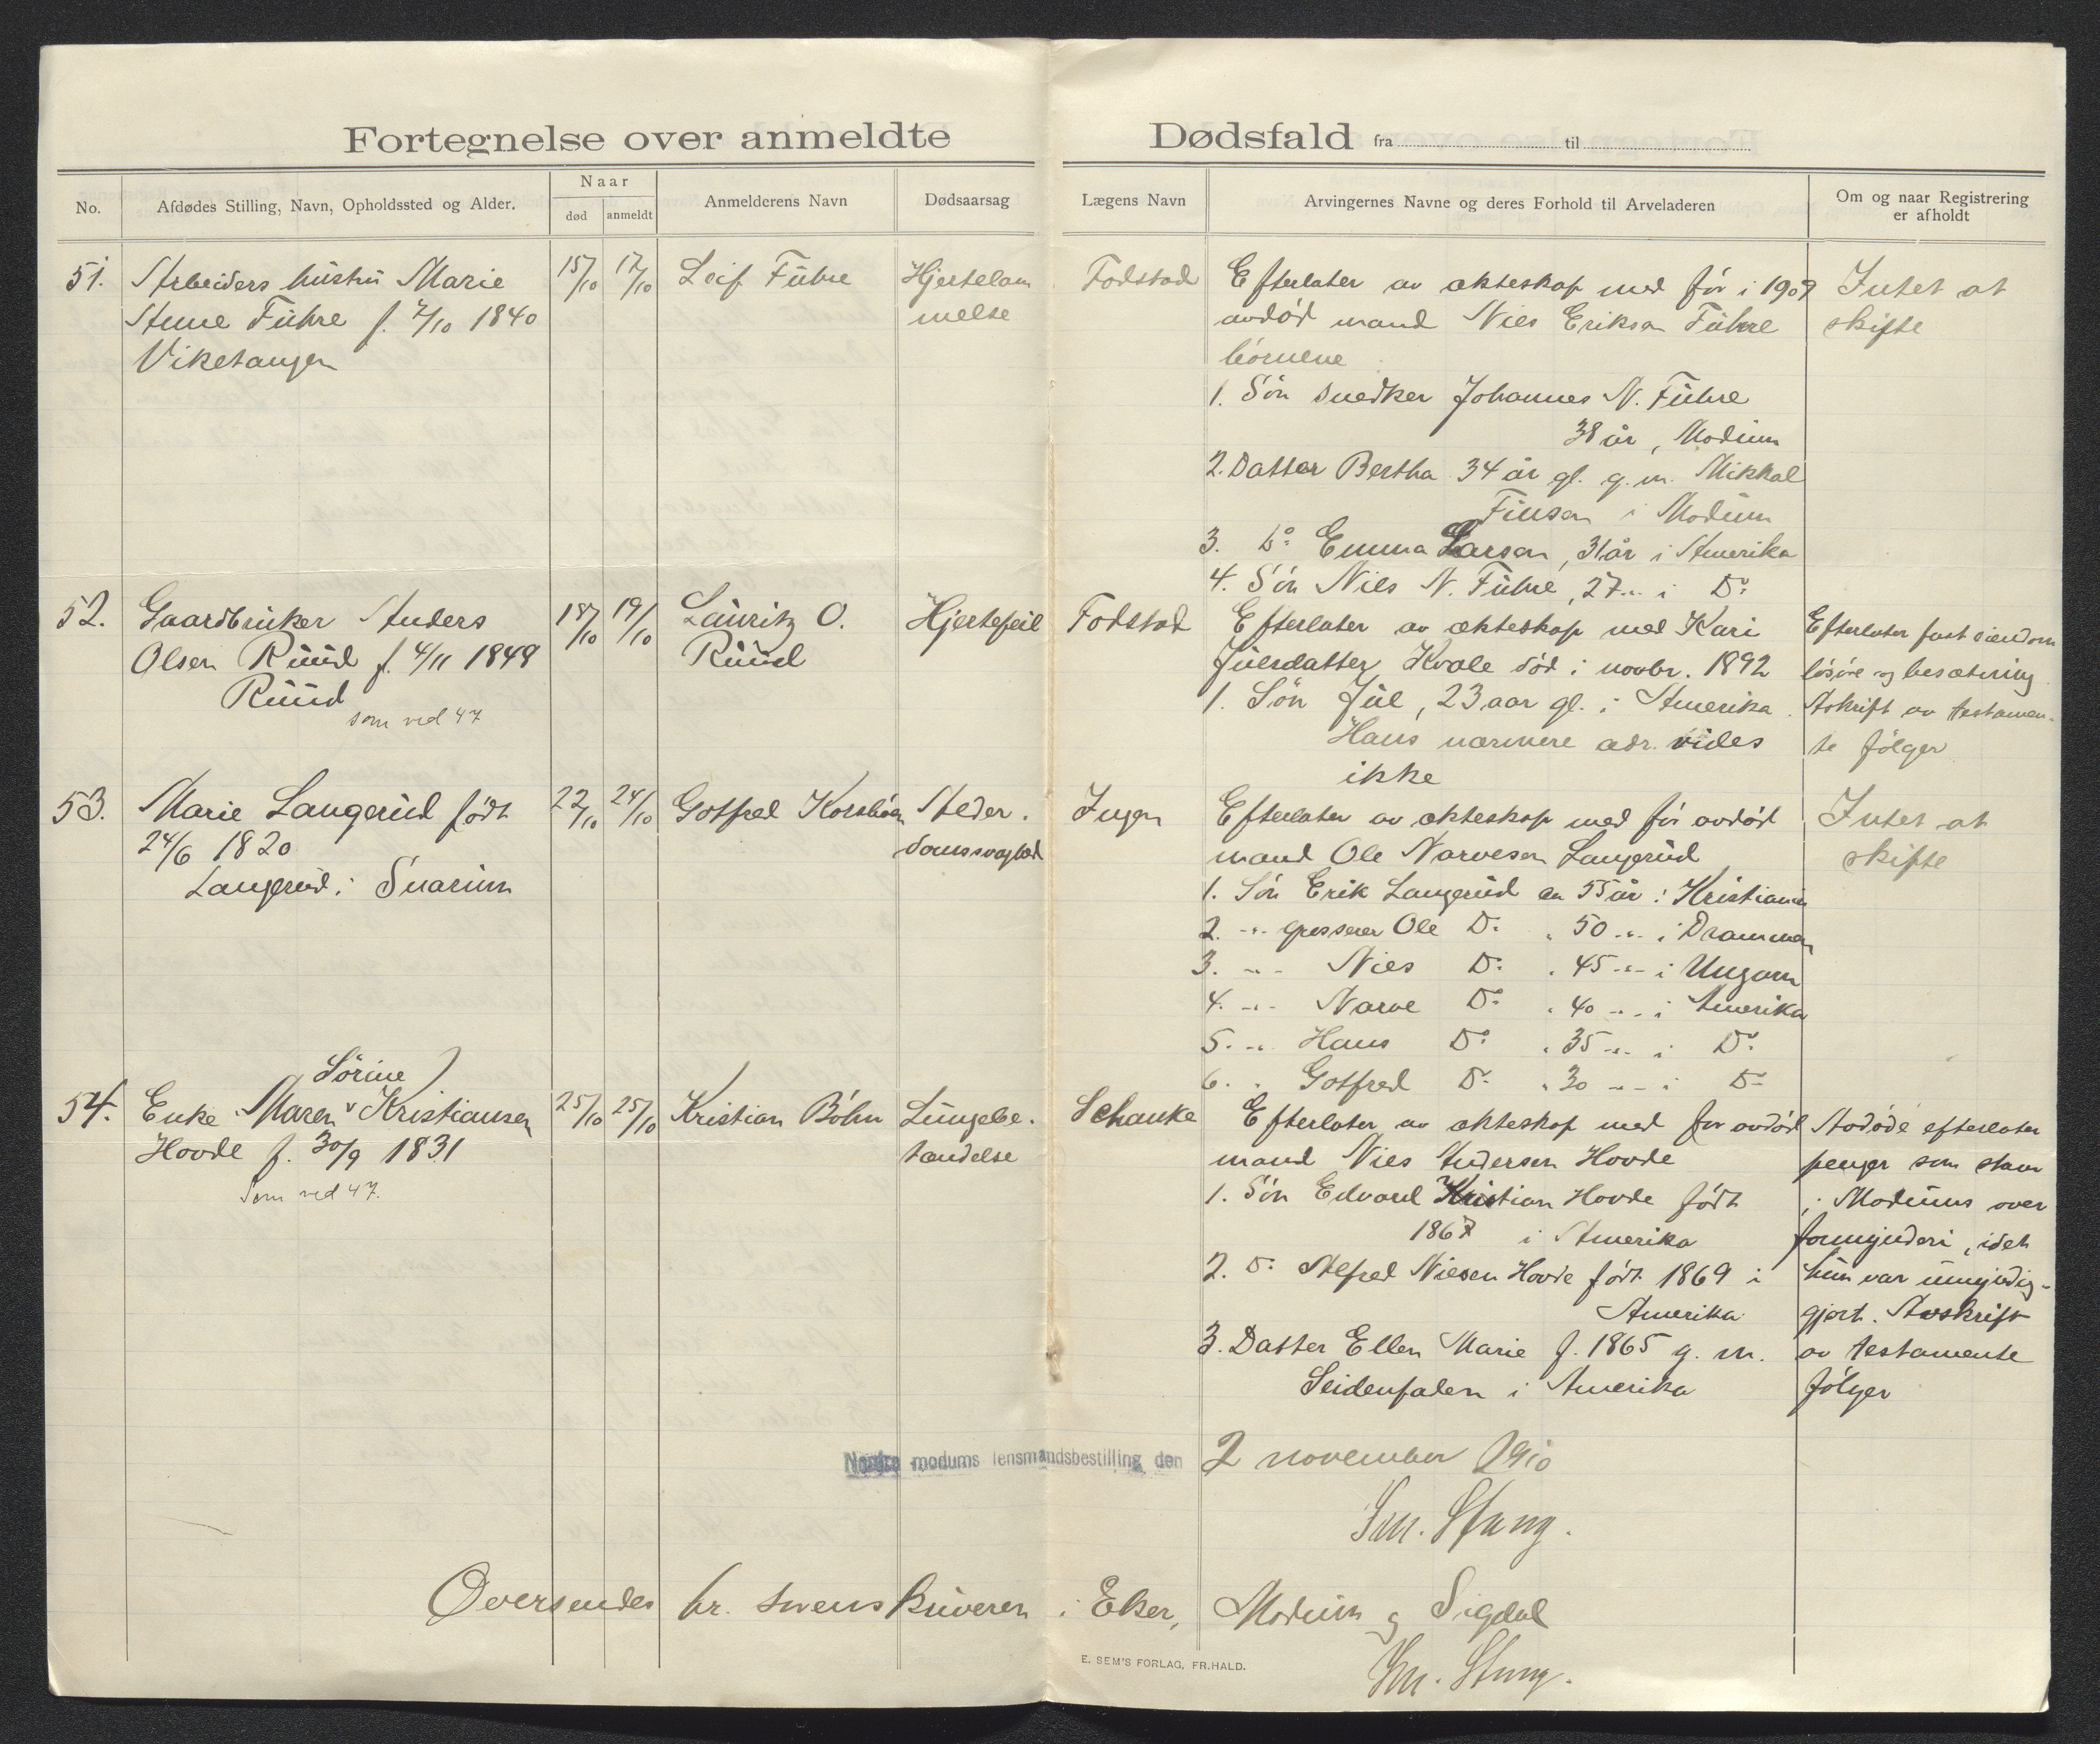 Fortegnelse over anmeldte Dødsfald fra til
No.
Afdødes Stilling, Navn, Opholdssted og Alder.
Naar
død
anmeldt
Anmelderens Navn
Dødsaarsag
Lægens Navn
Arvingernes Navne og deres Forhold til Arveladeren
Om og naar Registrering
er afholdt
51.
Arbeiders hustru Marie
Fuhre f. 7/10 1840
Viketangen
15/10
17/10
Leif Fuhre
Hjertelam
melse
Fodstad
Efterlater av ekteskap med før i 1909
avdød mand Nils Eriksen Fuhre
børnene
1. Søn snedker Johannes N. Fuhre
38 år, Modum
2. Datter Bertha 34 år gl. g.m. Mikkal
Finsen i Modum
3. Do Emma Larsen, 31 år i Amerika
4. Søn Nils N. Fuhre, 27 -"- i Do
Intet at
skifte
52.
Gaardbruker Anders
Olsen Ruud f. 4/11 1849
Ruud
som ved 47
18/10
19/10
Lauritz O.
Ruud
Hjertefeil
Fodstad
Efterlater av ekteskap med Kari
Juelsdatter Kvale død i novbr. 1892
1. Søn Jul, 23 aar gl. i Amerika
Hans nærmere adr. vides
ikke
Efterlater fast eiendom
løsøre og besætning
Avskrift av testamen-
te følger
53.
Marie Langerud født
24/6 1820
Langerud i Snarum
22/10
24/10
Gotfred Korsbøen
Alder-
domssvaghed
Ingen
Efterlater av ekteskap med før avdød
mand Ole Narvesen Langerud
1. Søn Erik Langerud ca 55 år i Kristiania
2. -"- grosserer Ole Do " 50 -"- i Drammen
3. -"- Nils Do " 45 -"- i Ungarn
4. -"- Narve Do " 40 -"- i Amerika
5. -"- Hans Do " 35 -"- i Do
6. " Gotfred Do " 30 -"- i Do
Intet at
skifte
54.
Sørine
Enke Maren v Kristiansen
Hovde f. 30/9 1831
Som ved 47.
25/10
25/10
Kristian Bøhn
Lungebe-
tændelse
Schanke
Efterlater av ekteskap med før avdød
mand Nils Andersen Hovde
1. Søn Edvard Kristian Hovde født
1867 i Amerika
2. Do Alfred Nilsen Hovde født 1869 i
Amerika
3. Datter Ellen Marie f. 1865 g.m.
Seidenfaden i Amerika
Avdøde efterlater
penger som staar
i Modums over
formynderi, idet
hun var umyndig-
gjort. Avskrift
av testamente
følger
Nordre modums lensmandsbestilling den 2 november 1910
Sm. Stang.
Oversendes hr. sorenskriveren i Eker, Modum og Sigdal
Sm. Stang.
E. SEM'S FORLAG, FR.HALD.